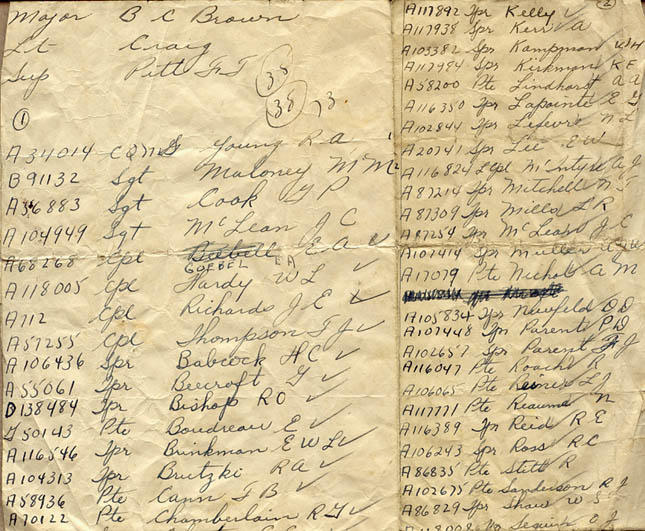 Major B C Brown
Lt Craig
Sup Pitt F T
38
38 13
1
A34014 CQMS Young R A
B91132 Sgt Maloney M M
A36883 Sgt Cook G P
A104949 Sgt McLean J C
A68268 Cpl E A
GOEBEL EA
A118005 Cpl Hardy W L
A112 Cpl Richards J E
A57255 Cpl Thompson F J
A106436 Spr Babcock H C
A55061 Tpr Beecroft G
D138484 Tpr Bishop R O
G50143 Pte Boudreau E
A116546 Tpr Brinkman E W L
A104313 Tpr Brutzki R A
A58936 Pte Cann F B
A70122 Pte Chamberlain R G
2
A117892 Tpr Kelly
A117938 Spr Kerr A
A103382 Spr Kampman W H
A117984 Spr Kirkman K E
A58200 Pte Lindhart A A
A116350 Tpr Lapointe E G
A102844 Tpr Lefevre N L
A20741 Spr Lee E W
A116824 LCpl McIntyre J
A87214 Spr Mitchell N S
A87309 Spr Mills L R
A87254 Tpr McLean J C
A107414 Spr Muller
A17079 Pte Nichols A M
A105834 Tpr Neufeld D D
A107448 Tpr Parent P D
A102657 Spr Parent J
A116047 Pte Roach R
A106065 Pte L J
A117771 Pte Reaume N
A116389 Tpr Reid R E
A106243 Spr Ross R C
A86835 Pte Stitt R
A102675 Pte Sanderson R J
A86829 Spr Shaw W S
A118008 Seguin J